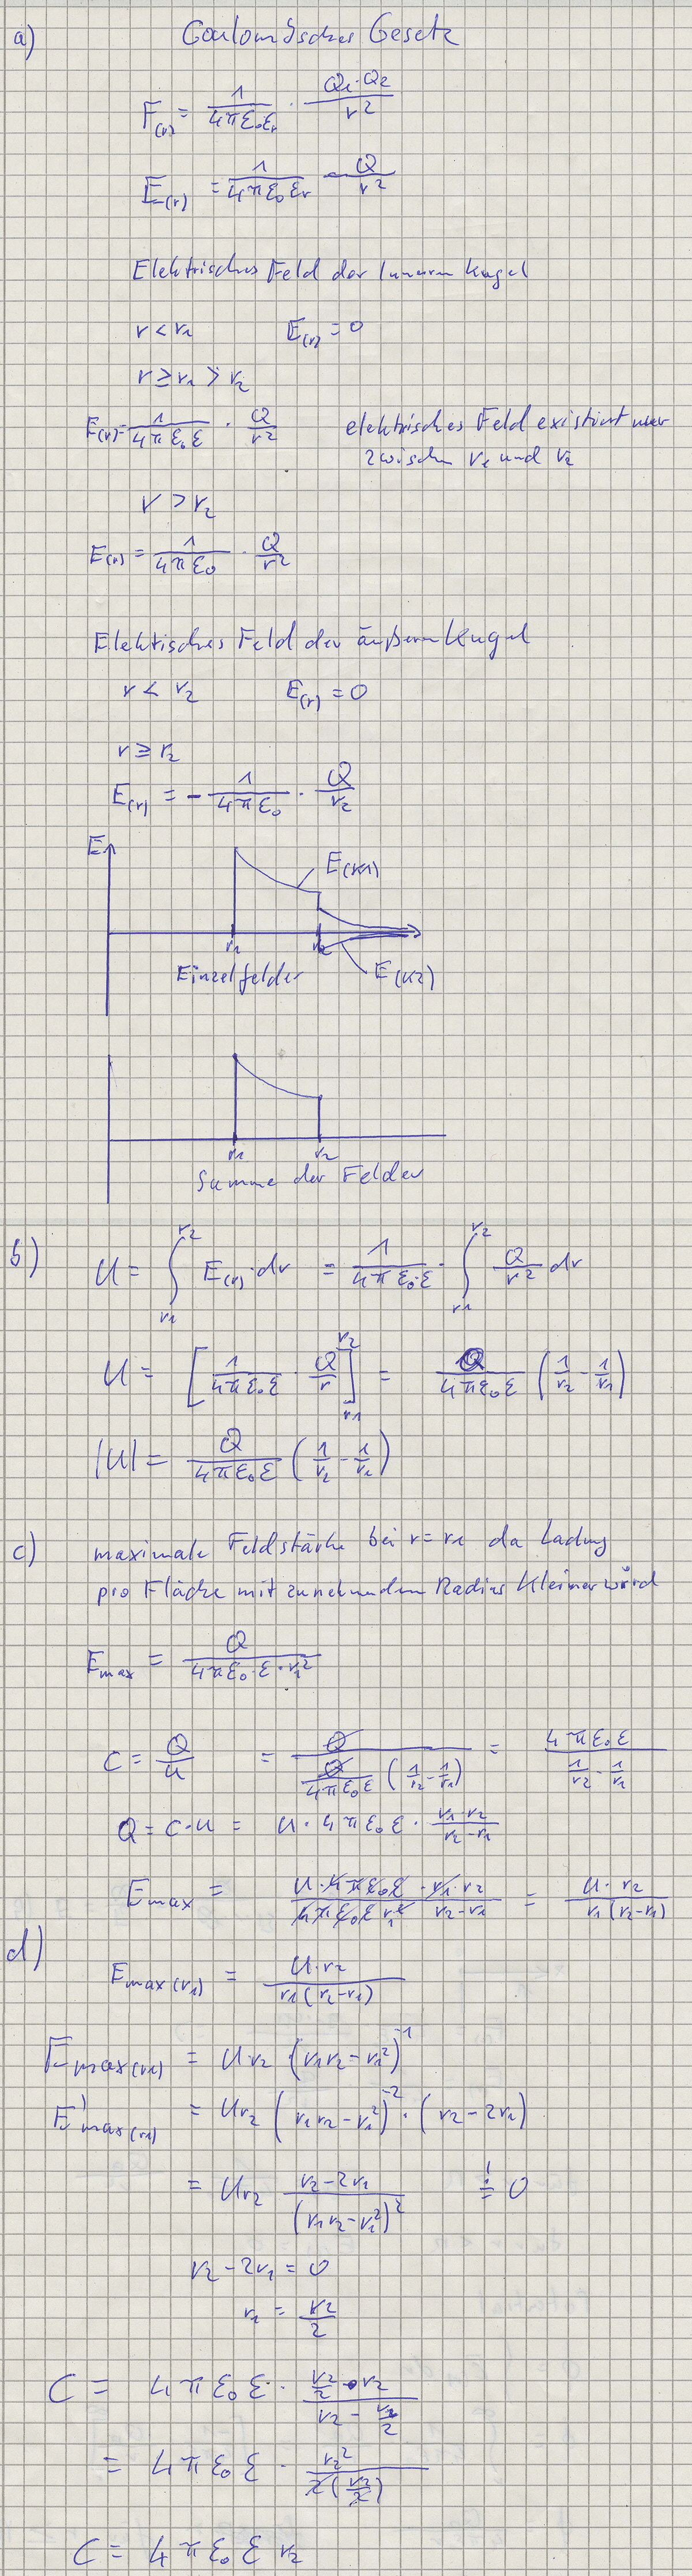 a) Coulombsches Gesetz
F(r) = 1/(4πε₀εr) · (Q₁·Q₂)/r²
E(r) = 1/(4πε₀εr) · Q/r²
Elektrisches Feld der inneren Kugel
r < r₁ E(r) = 0
r ≥ r₁ > r₂
E(r) = 1/(4πε₀ε) · Q/r² elektrisches Feld existiert nur
zwischen r₁ und r₂
r > r₂
E(r) = 1/(4πε₀) · Q/r²
Elektisches Feld der äußeren Kugel
r < r₂ E(r) = 0
r ≥ r₂
E(r) = - 1/(4πε₀) · Q/r₂
E
E(K1)
r₁ r₂
Einzelfelder E(K2)
r₁ r₂
Summe der Felder
b) U = ∫_{r1}^{r2} E(r)·dr = 1/(4πε₀·ε) · ∫_{r1}^{r2} Q/r² dr
U = [1/(4πε₀ε) · Q/r]_{r1}^{r2} = Q/(4πε₀ε) (1/r₂ - 1/r₁)
|U| = Q/(4πε₀ε) (1/r₂ - 1/r₁)
c) maximale Feldstärke bei r = r₁ da Ladung
pro Fläche mit zunehmendem Radius kleiner wird
Emax = Q/(4πε₀·ε·r₁²)
C = Q/U = Q/(Q/(4πε₀ε) (1/r₂ - 1/r₁)) = 4πε₀ε/(1/r₂ - 1/r₁)
Q = C·U = U·4πε₀ε · (r₁·r₂)/(r₂-r₁)
Emax = (U·4πε₀ε · r₁·r₂)/(4πε₀ε r₁² r₂-r₁) = (U·r₂)/(r₁(r₂-r₁))
d) Emax(r₁) = (U·r₂)/(r₁(r₂-r₁))
Emax(r₁) = U·r₂ (r₁r₂ - r₁²)⁻¹
E'max(r₁) = Ur₂ (r₁r₂ - r₁²)⁻² · (r₂ - 2r₁)
= Ur₂ (r₂-2r₁)/(r₁r₂-r₁²)² =! 0
r₂ - 2r₁ = 0
r₁ = r₂/2
C = 4πε₀ε · (r₂/2 · r₂)/(r₂ - r₂/2)
= 4πε₀ε · r₂²/(2(r₂/2))
C = 4πε₀ε r₂